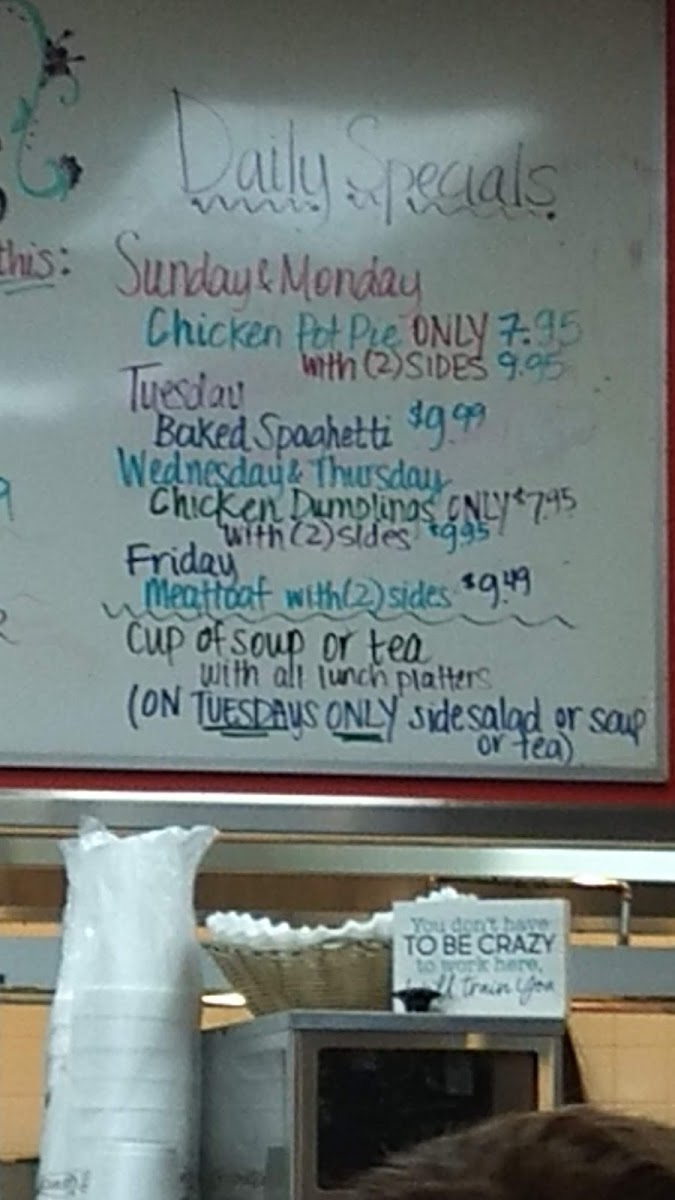 Daily Specials
this:
Sunday & Monday
Chicken Pot Pie ONLY 7.95
with (2) SIDES 9.95
Tuesday
Baked Spaghetti $9.99
Wednesday & Thursday
Chicken Dumplings ONLY $7.95
with (2) sides $9.95
Friday
Meatloaf with (2) sides $9.49
Cup of soup or tea
with all lunch platters
(ON TUESDAYS ONLY side salad or soup
or tea)
You don't have
TO BE CRAZY
to work here,
Train You